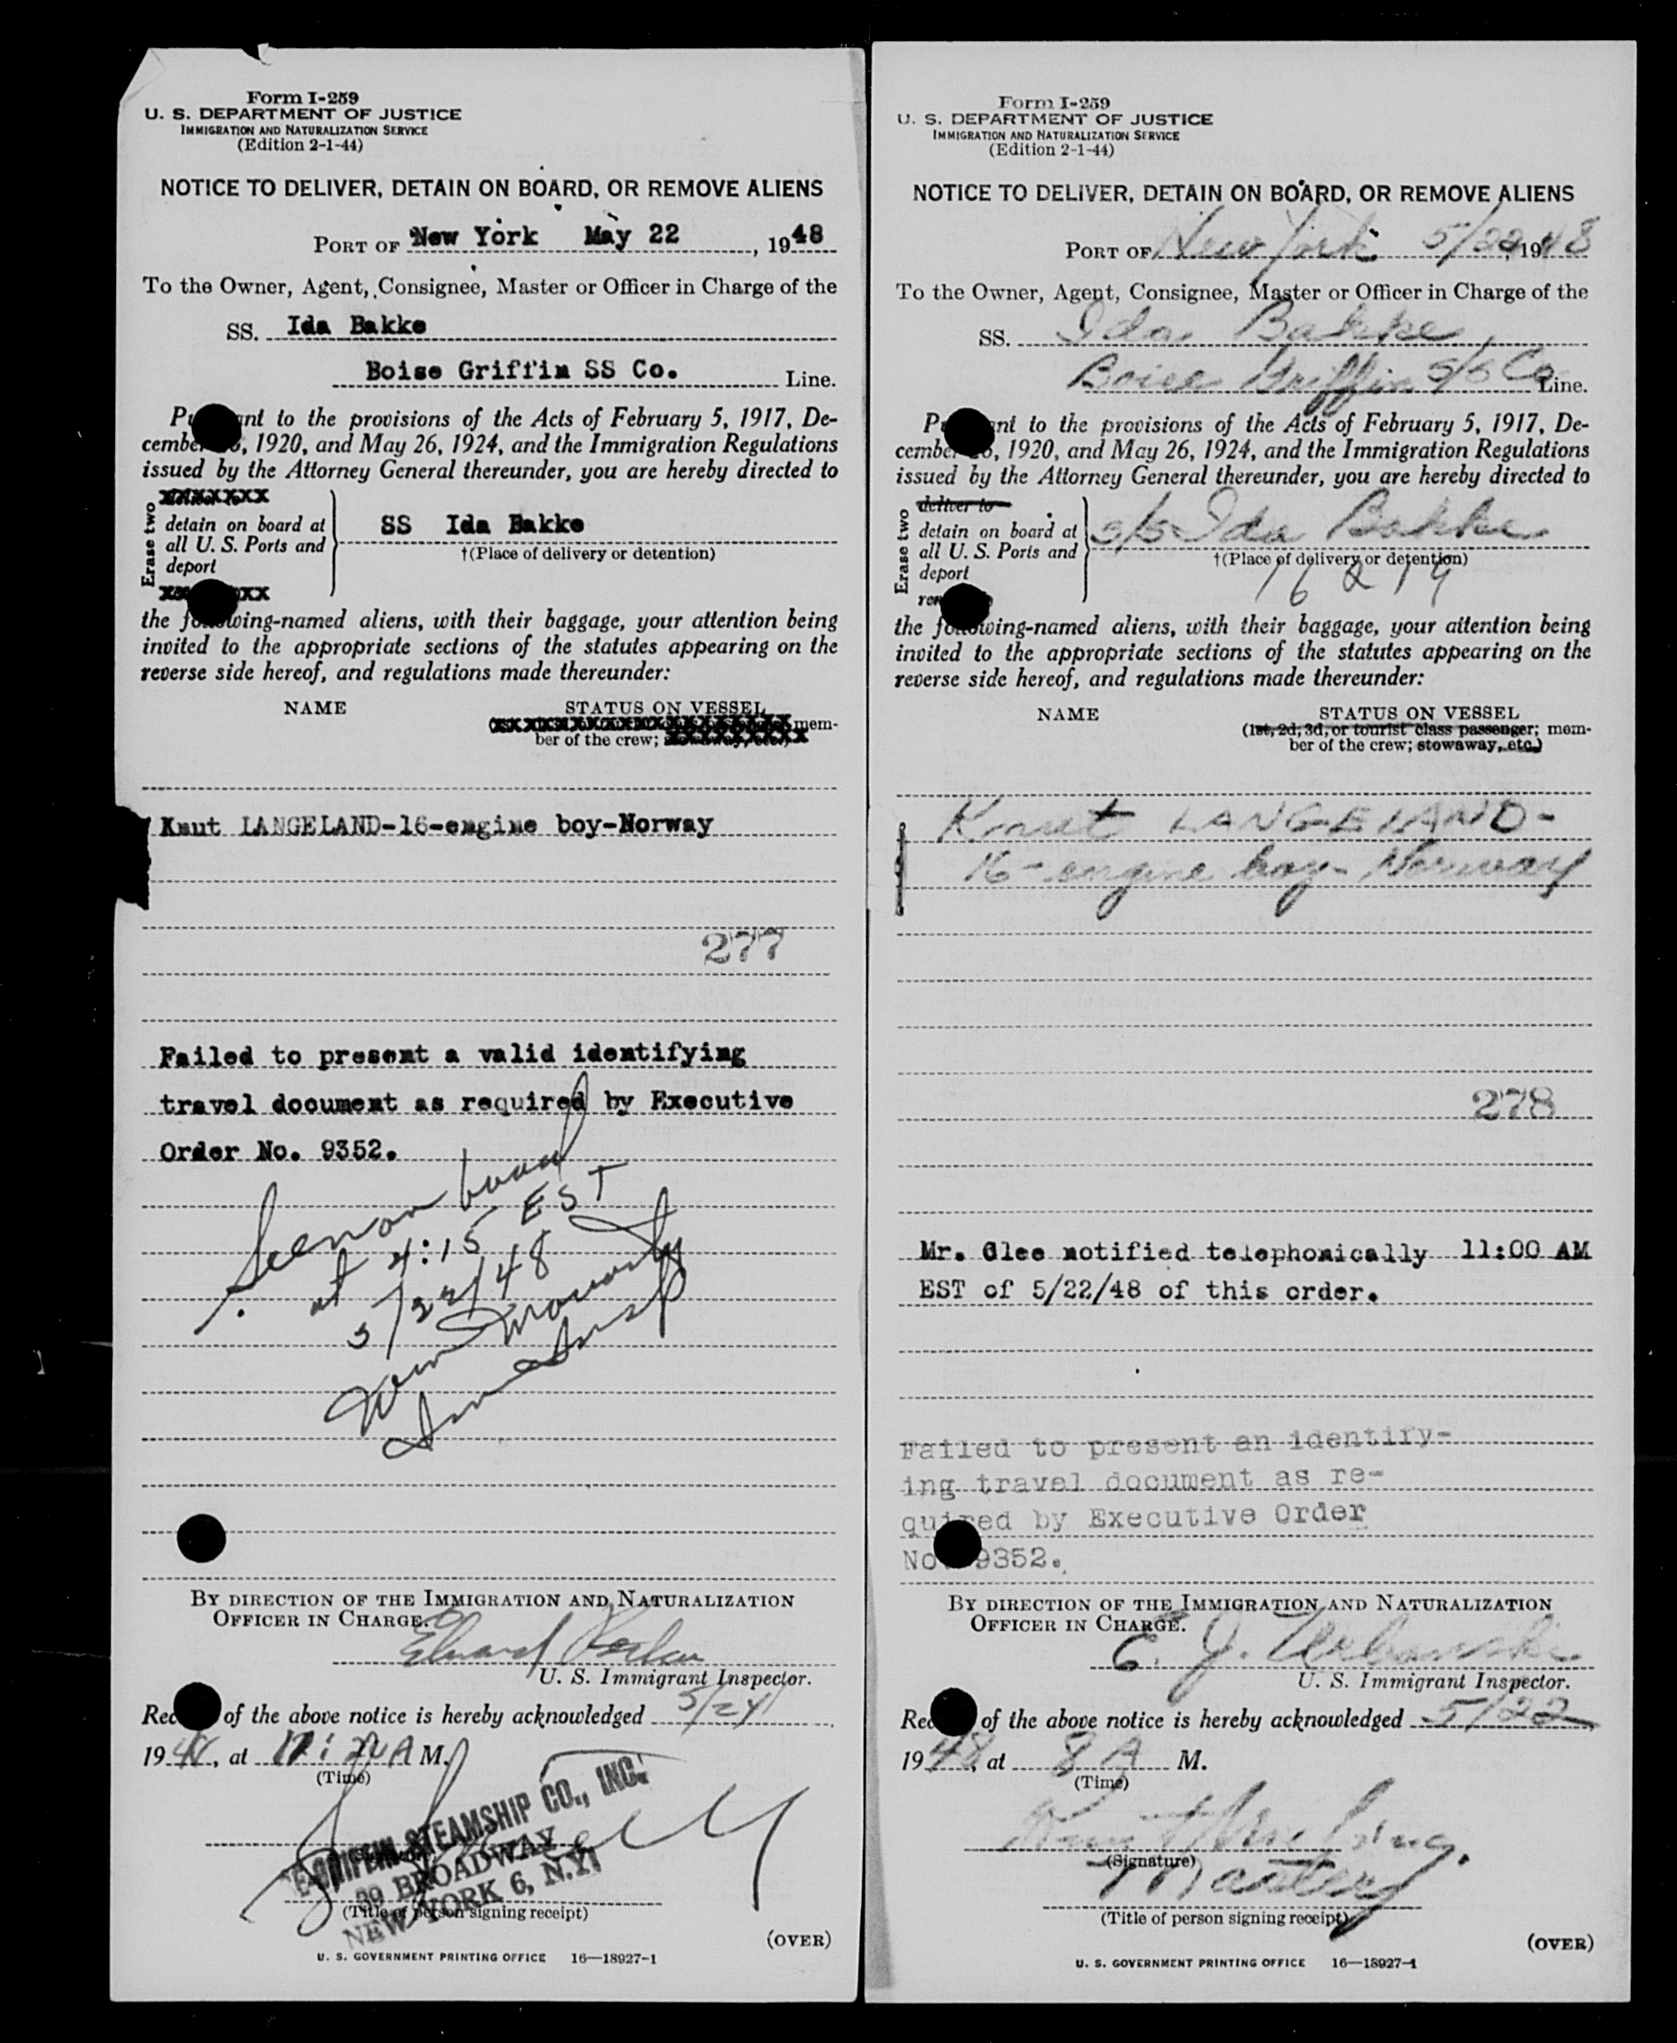 Form I-259
U. S. DEPARTMENT OF JUSTICE
IMMIGRATION AND NATURALIZATION SERVICE
(Edition 2-1-44)
NOTICE TO DELIVER, DETAIN ON BOARD, OR REMOVE ALIENS
PORT OF New York May 22, 1948
To the Owner, Agent, Consignee, Master or Officer in Charge of the
SS. Ida Bakke
Boise Griffin SS Co. Line.
nt to the provisions of the Acts of February 5, 1917, De-
cember , 1920, and May 26, 1924, and the Immigration Regulations
issued by the Attorney General thereunder, you are hereby directed to
Erase two
detain on board at
all U. S. Ports and
deport
SS Ida Bakke
†(Place of delivery or detention)
the following-named aliens, with their baggage, your attention being
invited to the appropriate sections of the statutes appearing on the
reverse side hereof, and regulations made thereunder:
NAME STATUS ON VESSEL
mem-
ber of the crew;
Knut LANGELAND-16-engine boy-Norway
277
Failed to present a valid identifying
travel document as required by Executive
Order No. 9352.
Seen on board
at 4:15 EST
5/22/48
BY DIRECTION OF THE IMMIGRATION AND NATURALIZATION
OFFICER IN CHARGE.
U. S. Immigrant Inspector.
Rec of the above notice is hereby acknowledged 5/24
1948, at A M.
(Time)
GRIFFIN STEAMSHIP CO., INC.
39 BROADWAY
NEW YORK 6, N.Y.
(Title of person signing receipt)
(OVER)
U. S. GOVERNMENT PRINTING OFFICE 16—18927-1
Form I-259
U. S. DEPARTMENT OF JUSTICE
IMMIGRATION AND NATURALIZATION SERVICE
(Edition 2-1-44)
NOTICE TO DELIVER, DETAIN ON BOARD, OR REMOVE ALIENS
PORT OF New York 5/22, 1948
To the Owner, Agent, Consignee, Master or Officer in Charge of the
SS. Ida Bakke
Boise Griffin S/S Co Line.
nt to the provisions of the Acts of February 5, 1917, De-
cember , 1920, and May 26, 1924, and the Immigration Regulations
issued by the Attorney General thereunder, you are hereby directed to
Erase two
deliver to
detain on board at
all U. S. Ports and
deport
S/S Ida Bakke
†(Place of delivery or detention)
16 a 19
the following-named aliens, with their baggage, your attention being
invited to the appropriate sections of the statutes appearing on the
reverse side hereof, and regulations made thereunder:
NAME STATUS ON VESSEL
(1st, 2d, 3d, or tourist class passenger; mem-
ber of the crew; stowaway, etc.)
Knut LANGELAND-
16-engine boy-Norway
278
Mr. Glee notified telephonically 11:00 AM
EST of 5/22/48 of this order.
Failed to present an identify-
ing travel document as re-
quired by Executive Order
No. 9352.
BY DIRECTION OF THE IMMIGRATION AND NATURALIZATION
OFFICER IN CHARGE.
E. J. Urbanski
U. S. Immigrant Inspector.
Rec of the above notice is hereby acknowledged 5/22
1948, at 8 A M.
(Time)
(Signature)
Master
(Title of person signing receipt)
(OVER)
U. S. GOVERNMENT PRINTING OFFICE 16—18927-1